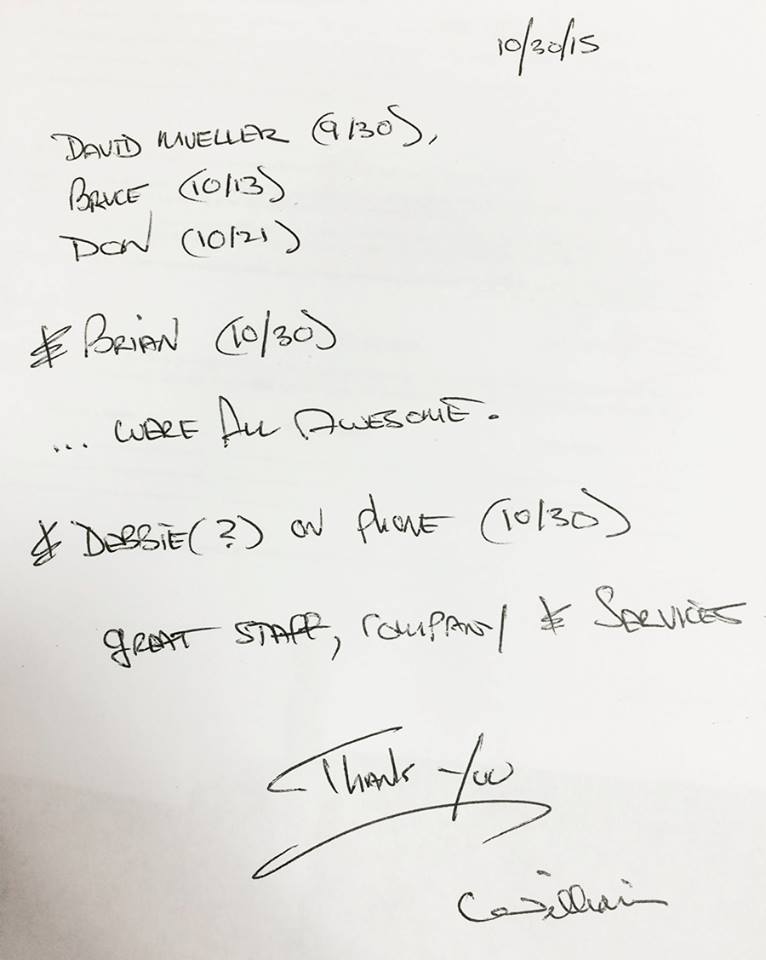 10/30/15
DAVID MUELLER (9/30),
BRUCE (10/13)
DON (10/21)
& BRIAN (10/30)
... WERE ALL AWESOME.
& DEBBIE(?) ON PHONE (10/30)
GREAT STAFF, COMPANY & SERVICES
THANK YOU